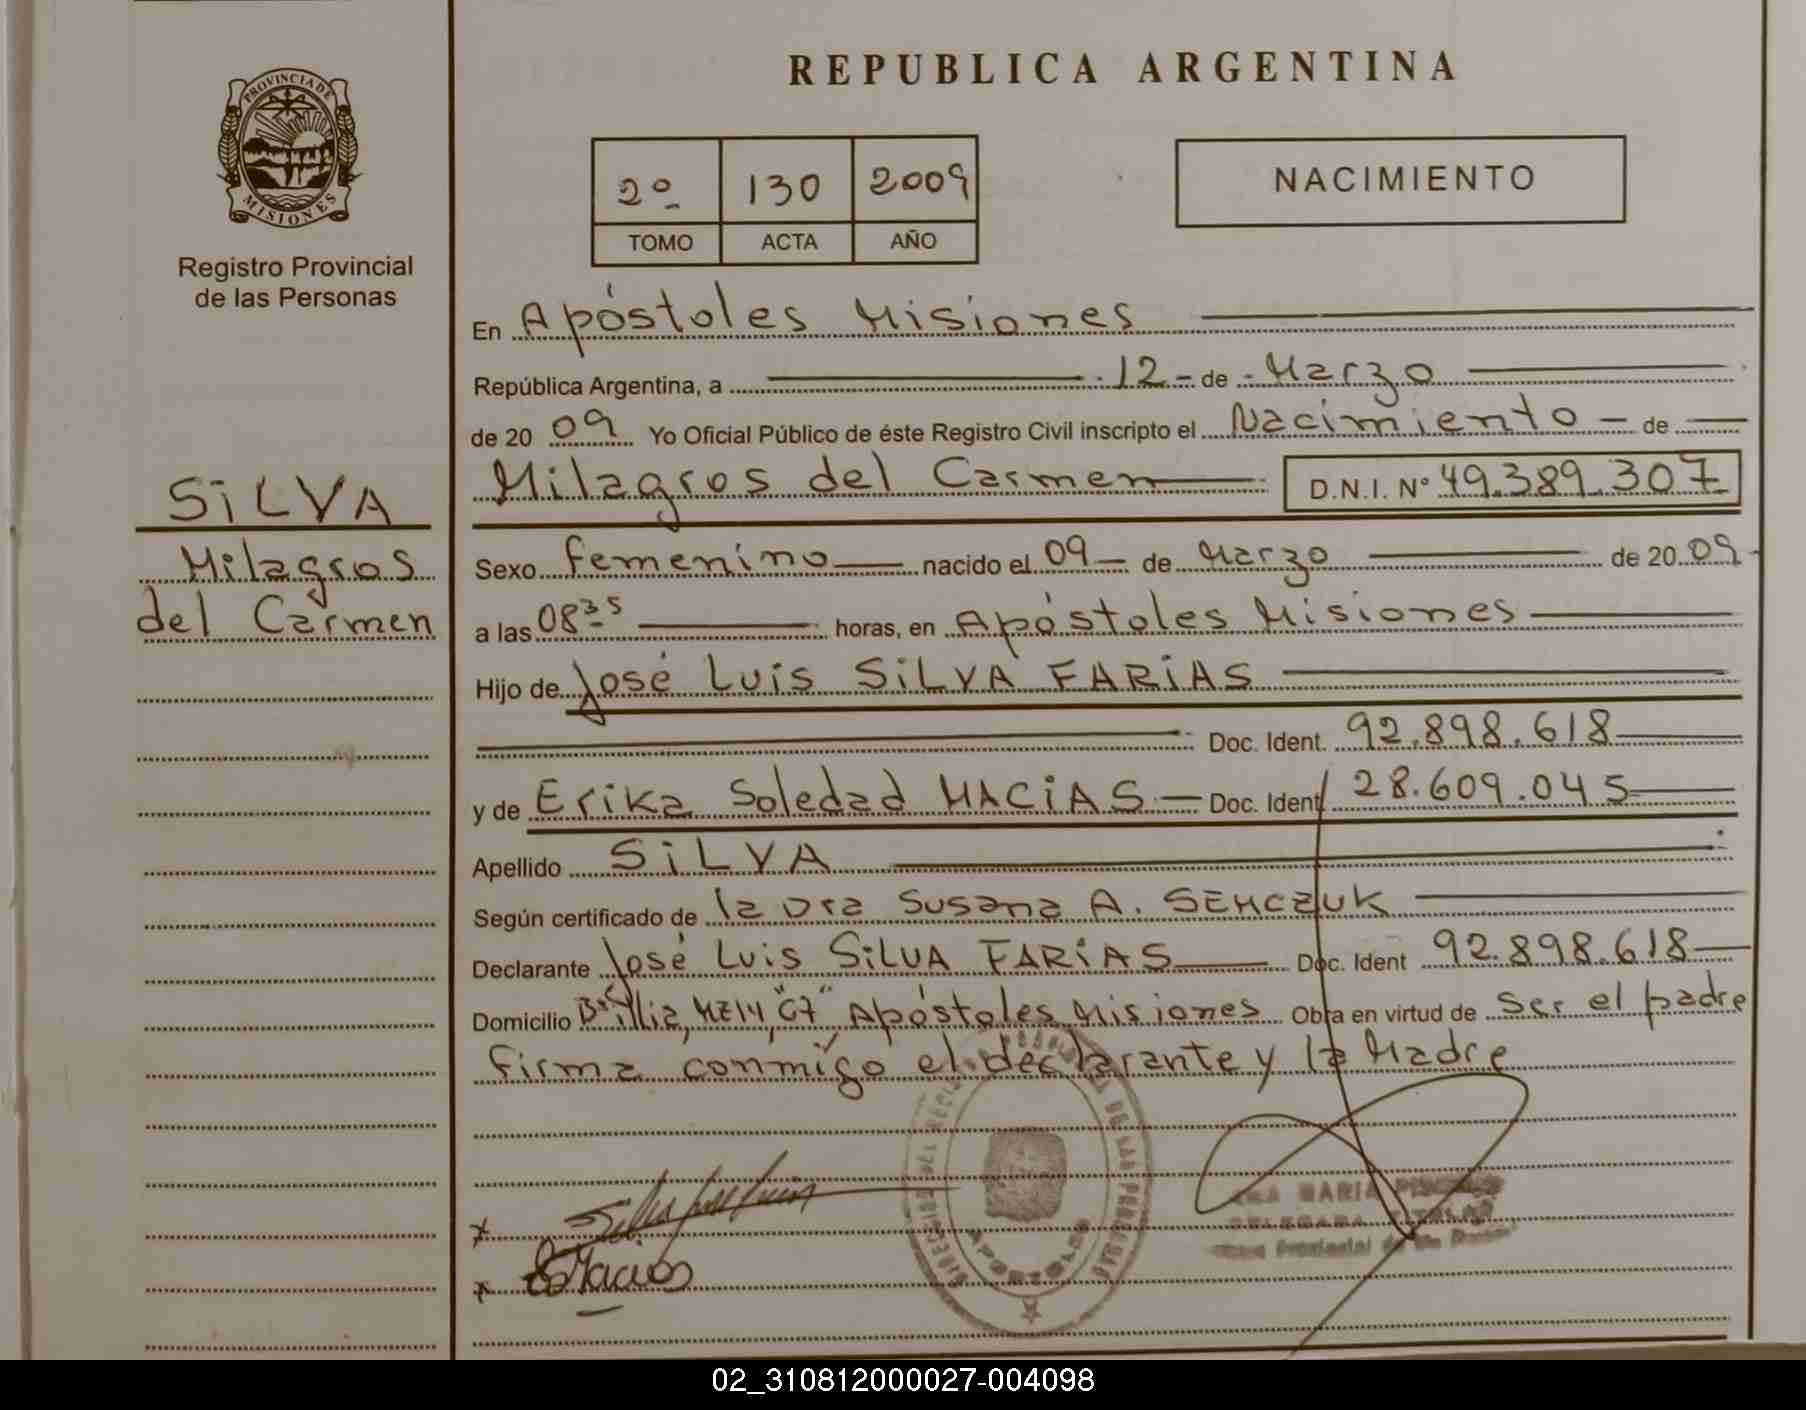 PROVINCIA DE
MISIONES
Registro Provincial
de las Personas
SiLVA
Milagros
del Carmen
REPUBLICA ARGENTINA
2º 130 2009
TOMO ACTA AÑO
NACIMIENTO
En Apóstoles Misiones
República Argentina, a 12 de Marzo
de 2009 Yo Oficial Público de éste Registro Civil inscripto el Nacimiento de
Milagros del Carmen D.N.I. Nº 49.389.307
Sexo femenino nacido el 09 de Marzo de 2009
a las 08 35 horas, en Apóstoles Misiones
Hijo de José Luis SiLVA FARiAS
Doc. Ident. 92.898.618
y de Erika Soledad MACiAS Doc. Ident 28.609.045
Apellido SiLVA
Según certificado de la Dra Susana A. SEMCZUK
Declarante José Luis SiLVA FARiAS Doc. Ident 92.898.618
Domicilio Apóstoles Misiones Obra en virtud de ser el padre
firma conmigo el declarante y la Madre
APOSTOLES
DELEGADA TITULAR
02_310812000027-004098